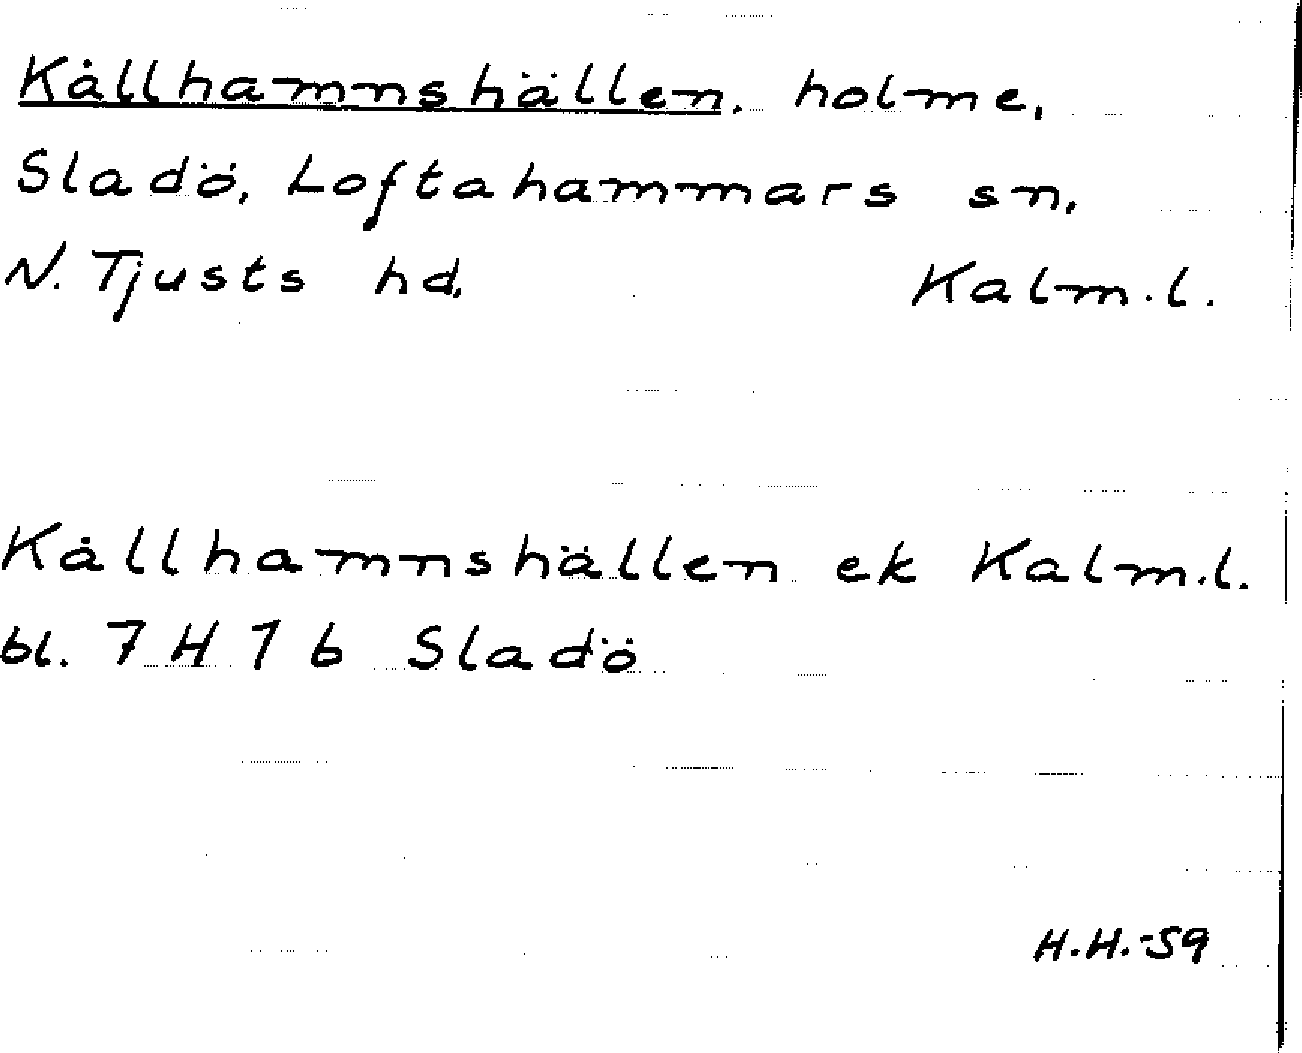 Kållhamnshällen. holme,
Sladö, Loftahammars sn,
N. Tjusts hd. Kalm.l.
Kållhamnshällen ek Kalm.l.
bl. 7 H 1 b Sladö
H.H.-59